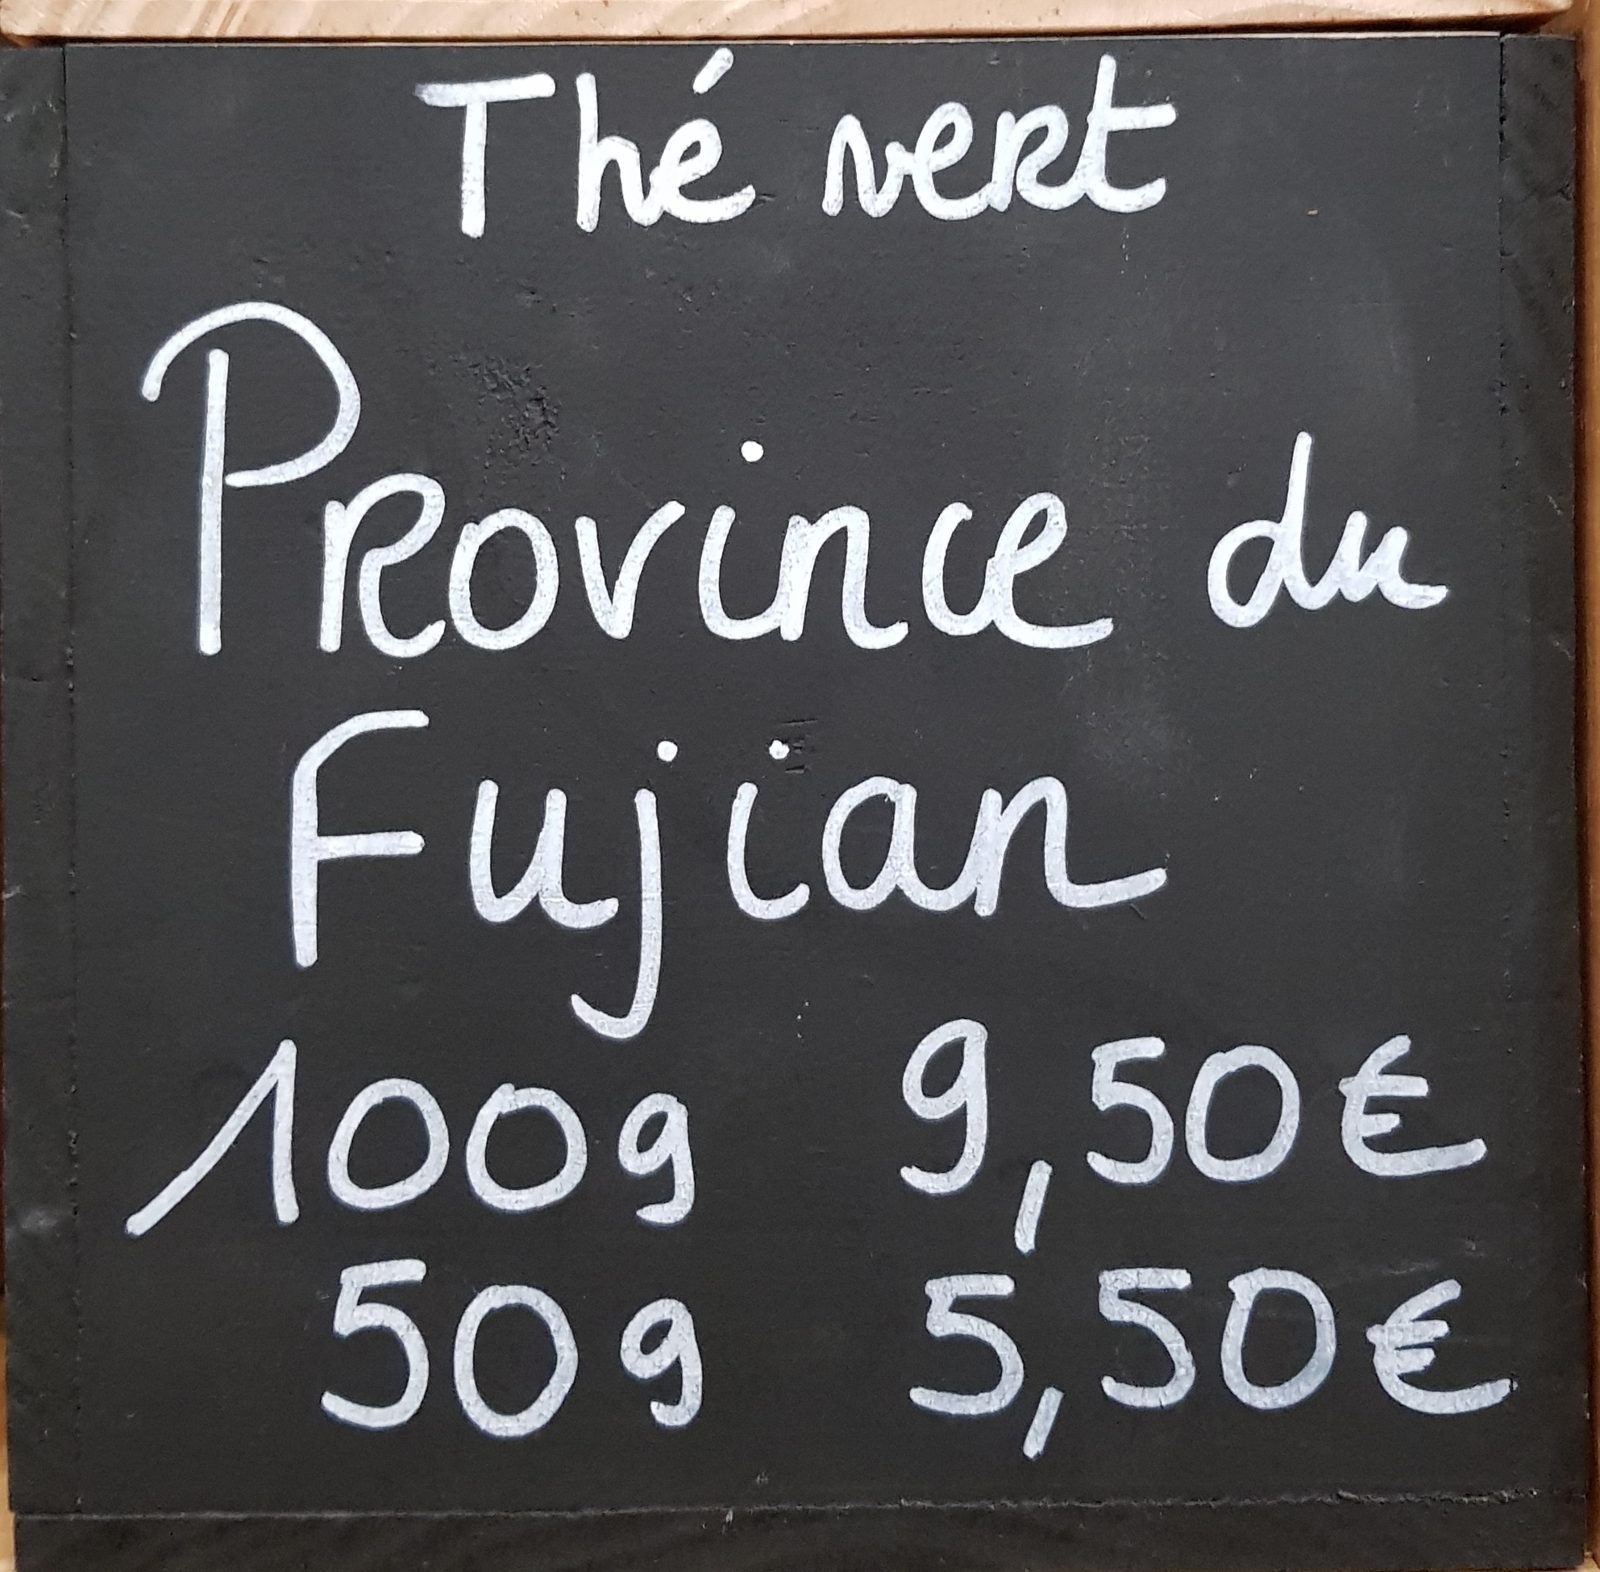 Thé vert
Province du
Fujian
100g 9,50€
50g 5,50€